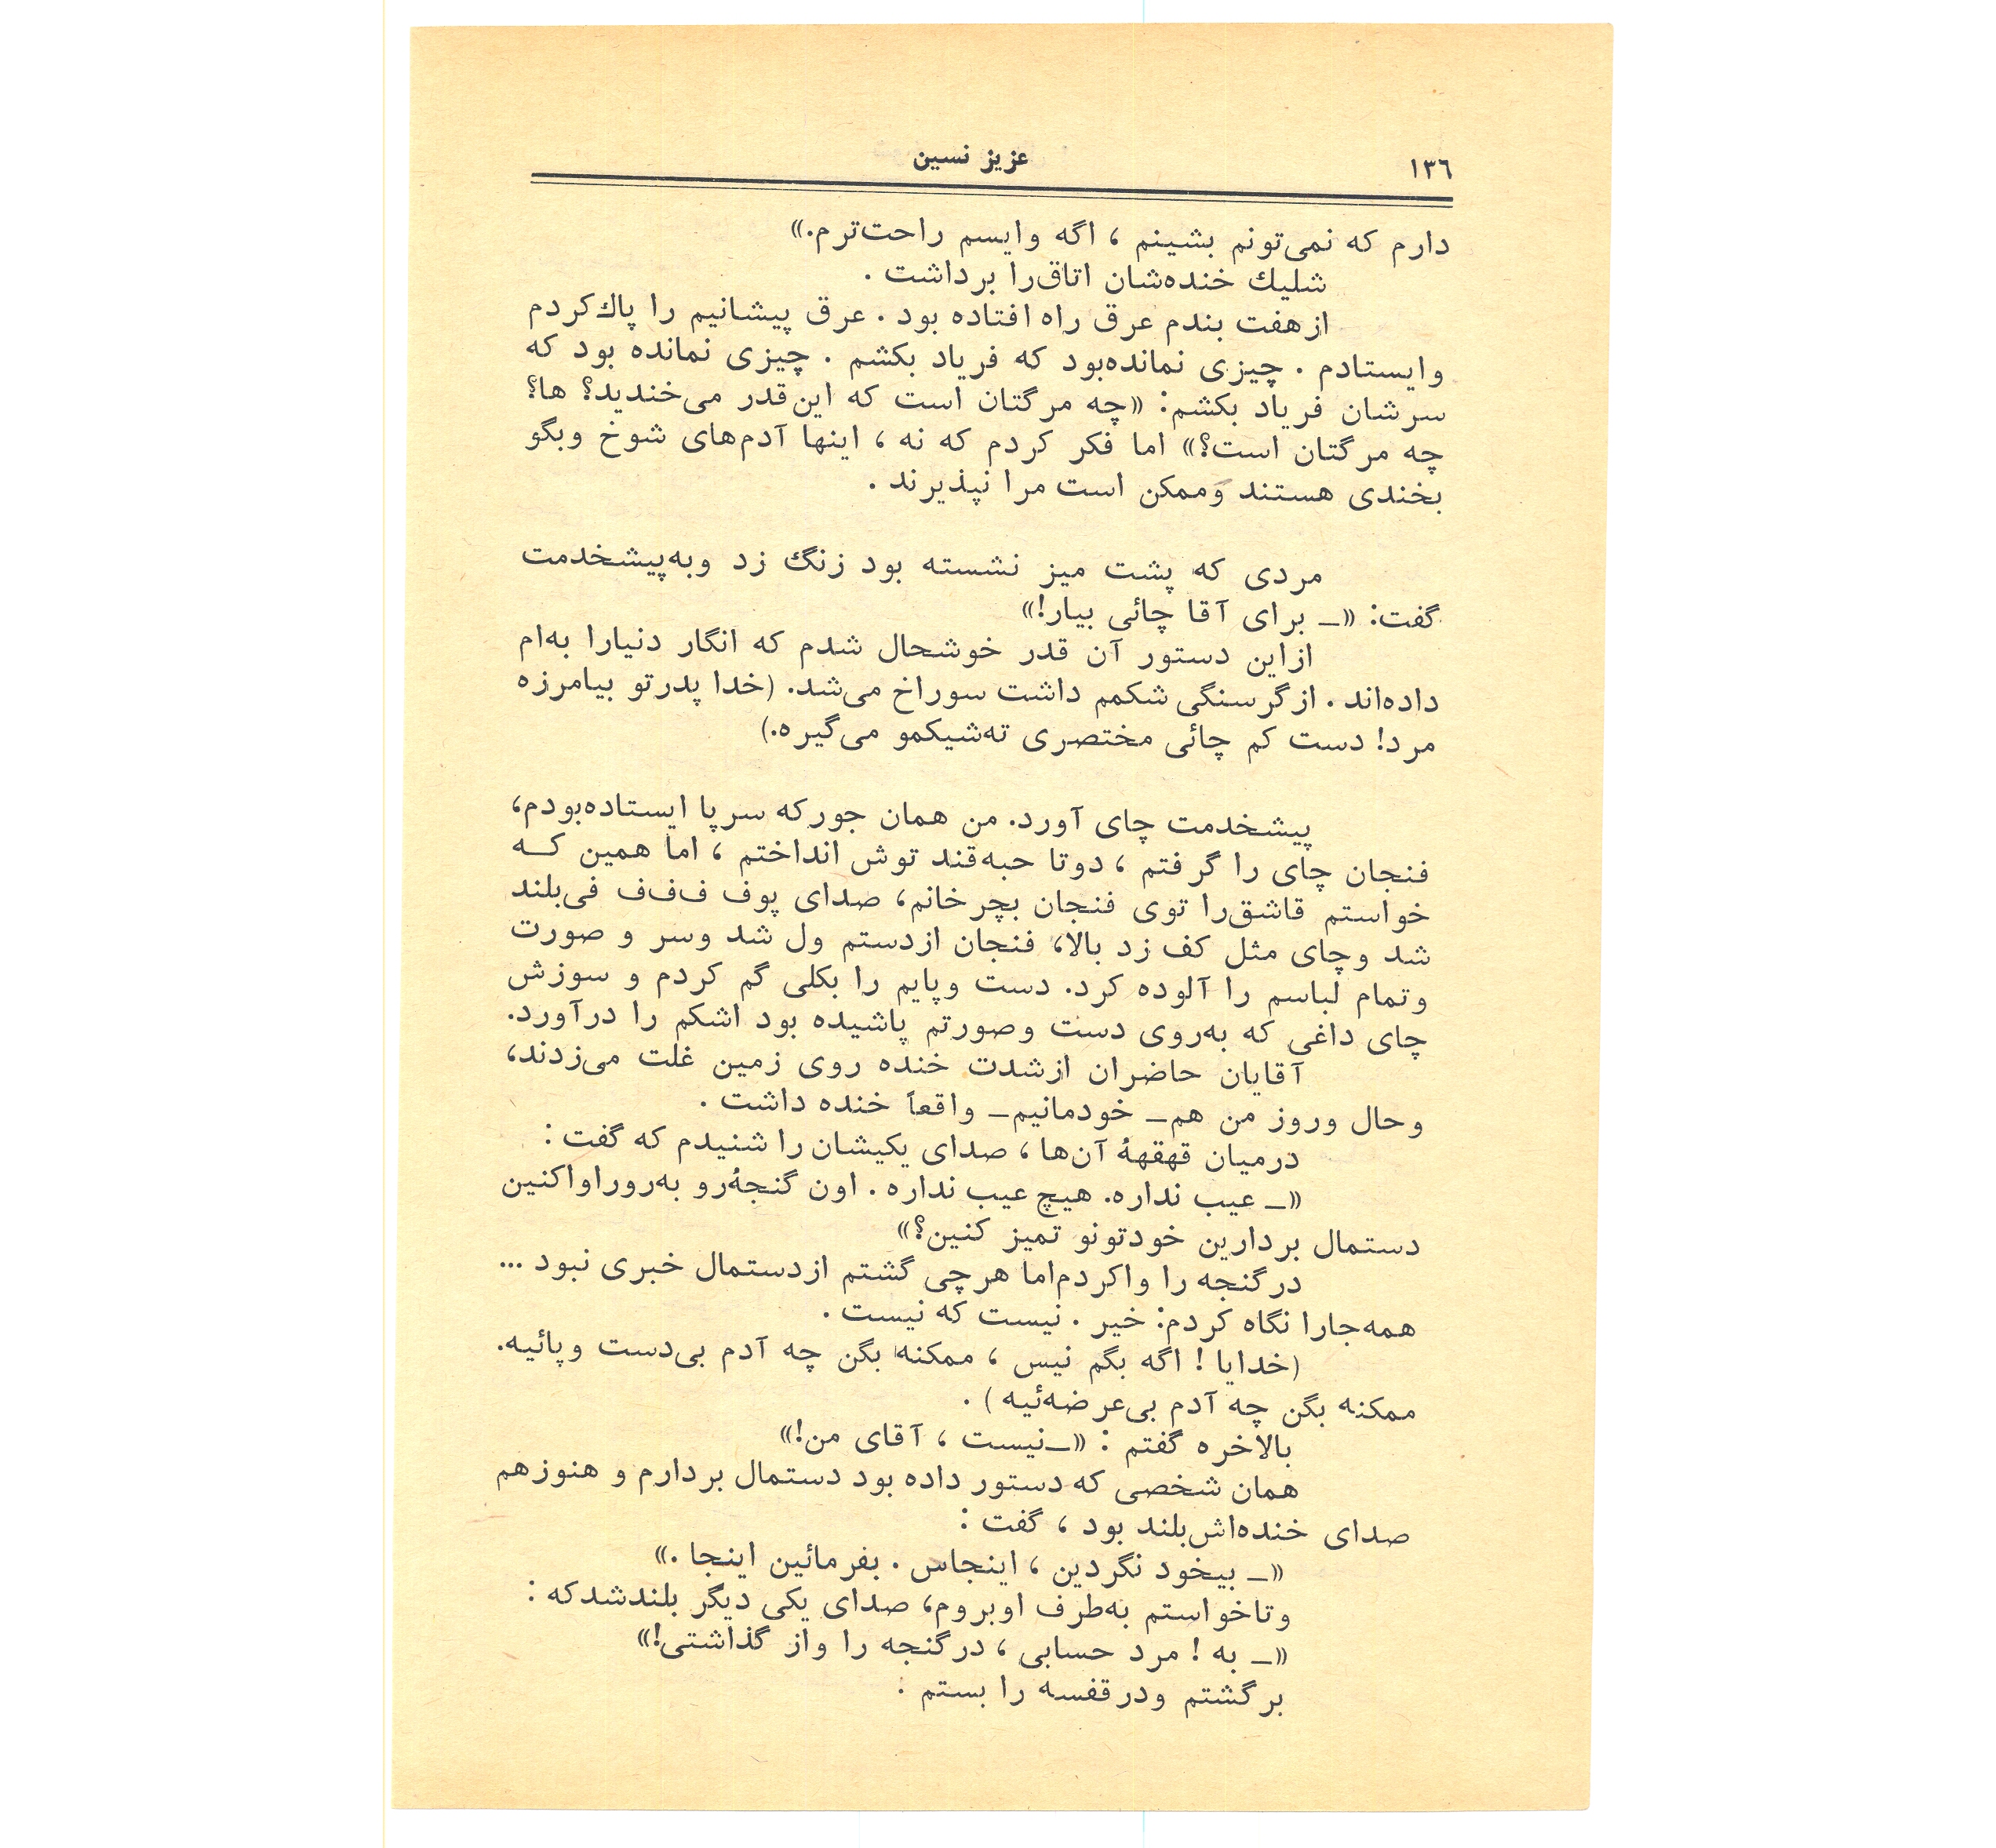 ۱۳٦
عزیز نسین
دارم که نمی‌تونم بشینم ، اگه وایسم راحت‌ترم.»
شلیك خنده‌شان اتاق‌را برداشت .
ازهفت بندم عرق راه افتاده بود . عرق پیشانیم را پاك‌کردم
وایستادم . چیزی نمانده‌بود که فریاد بکشم . چیزی نمانده بود که
سرشان فریاد بکشم: «چه مرگتان است که این‌قدر می‌خندید؟ ها؟
چه مرگتان است؟» اما فکر کردم که نه ، اینها آدم‌های شوخ وبگو
بخندی هستند وممکن است مرا نپذیرند .
مردی که پشت میز نشسته بود زنگ زد وبه‌پیشخدمت
گفت: «ــ برای آقا چائی بیار!»
ازاین دستور آن قدر خوشحال شدم که انگار دنیارا به‌ام
داده‌اند . ازگرسنگی شکمم داشت سوراخ می‌شد. (خدا پدرتو بیامرزه
مرد! دست کم چائی مختصری ته‌شیکمو می‌گیره.)
پیشخدمت چای آورد. من همان جورکه سرپا ایستاده‌بودم،
فنجان چای را گرفتم ، دوتا حبه‌قند توش انداختم ، اما همین کــه
خواستم قاشق‌را توی فنجان بچرخانم، صدای پوف ف‌ف‌ف فی‌بلند
شد وچای مثل کف زد بالا، فنجان ازدستم ول شد وسر و صورت
وتمام لباسم را آلوده کرد. دست وپایم را بکلی گم کردم و سوزش
چای داغی که به‌روی دست وصورتم پاشیده بود اشکم را درآورد.
آقایان حاضران ازشدت خنده روی زمین غلت می‌زدند،
وحال وروز من هم‌ــ خودمانیم‌ــ واقعاً خنده داشت .
درمیان قهقههٔ آن‌ها ، صدای یکیشان را شنیدم که گفت :
«ــ عیب نداره. هیچ عیب نداره . اون گنجهٔ‌رو به‌روراواکنین
دستمال بردارین خودتونو تمیز کنین؟»
درگنجه را واکردم‌اما هرچی گشتم ازدستمال خبری نبود ...
همه‌جارا نگاه کردم: خیر . نیست که نیست .
(خدایا ! اگه بگم نیس ، ممکنه بگن چه آدم بی‌دست وپائیه.
ممکنه بگن چه آدم بی‌عرضه‌ئیه ) .
بالاخره گفتم : «ــ‌نیست ، آقای من!»
همان شخصی که دستور داده بود دستمال بردارم و هنوزهم
صدای خنده‌اش‌بلند بود ، گفت :
«ــ بیخود نگردین ، اینجاس . بفرمائین اینجا .»
وتاخواستم به‌طرف اوبروم، صدای یکی دیگر بلندشدکه :
«ــ به ! مرد حسابی ، درگنجه را واز گذاشتی!»
برگشتم ودرقفسه را بستم :